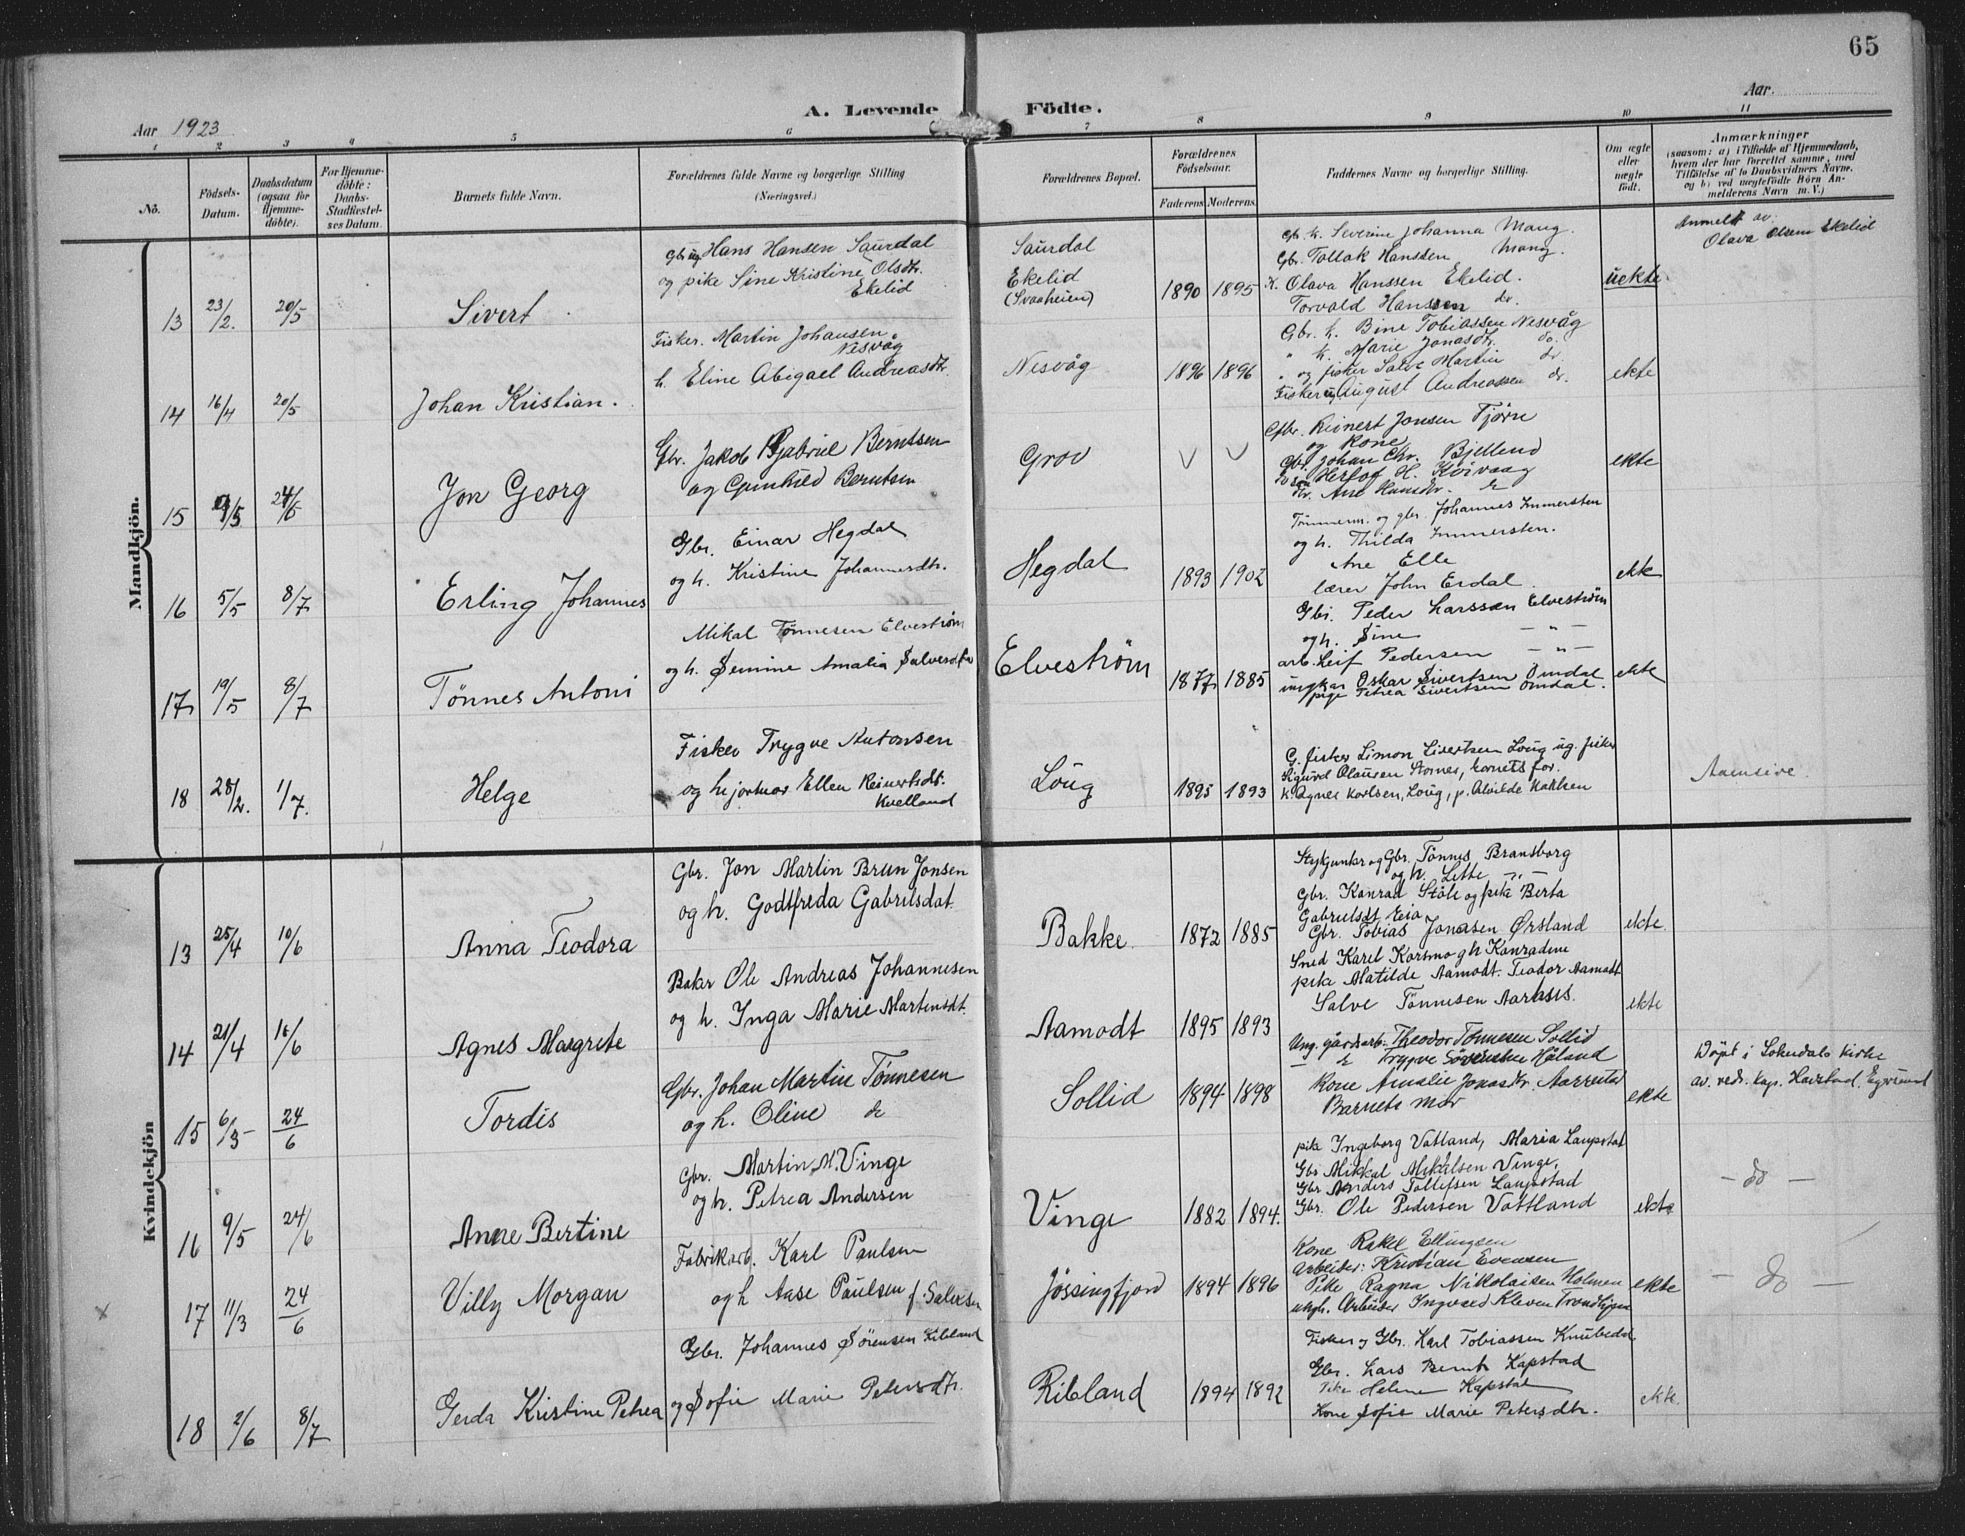 65
A. Levende Födte.
Aar 1923
Aar.
1 2 3 4 5 6 7 8 9 10 11
No.
Födsels-
Datum.
Daabsdatum
(ogsaa for
Hjemme-
döbte).
For Hjemme-
döbte:
Daabs-
Stadfæstel-
ses Datum.
Barnets fulde Navn.
Forældrenes fulde Navne og borgerlige Stilling
(Næringsvei.)
Forældrenes Bopæl.
Forældrenes
Födselsaar.
Faderens Moderens
Faddernes Navne og borgerlige Stilling.
Om ægte
eller
uægte
födt.
Anmærkninger
(saasom: a) i Tilfælde af Hjemmedaab,
hvem der har forrettet samme, med
Tilföielse af to Daabsvidners Navne,
og b) ved uægtefödte Börn An-
melderens Navn m. V.)
Mandkjön.
13 23/2. 20/5 Sivert
Hans Hansen Saurdal
og pike Sine Kristine Olsdtr.
Ekelid
Saurdal
Ekelid
(Svaaheien)
1890 1895
Gbr. h. Severine Johanna Mong.
Gbr. Tollak Hansen Mong.
K. Olava Hanssen Ekelid.
Torvald Hanssen do.
uekte
Anmeldt av
Olava Olsen Ekelid
14 16/4 20/5 Johan Kristian.
Fisker. Martin Johansen
Nesvåg
h. Eline Abigael Andreasdtr.
Nesvåg
1896 1896
Gbr. h. Bine Tobiassen Nesvåg
" h. Marie Jonasdtr. do.
" og fisker Salve Martin do.
Fisker August Andreassen do.
ekte
15 9/5 24/6 Jon Georg
Gbr. Jakob Gabriel Berntsen
og Gunhild Berntsen
Grov
V V
Gbr. Reinert Jonsen Tjörn
og Kone
Gbr. Johan Chr. Bjelland
Herlof H. Kvivaag
Fr. Ane Hansdtr.
ekte
16 5/5 8/7 Erling Johannes
Gbr. Einar Hegdal
og h. Kristine Johannesdtr.
Hegdal
1893 1902
Tömmerm. og gbr. Johannes Immersten
og h. Thilda Immersten.
Ane Elle
lærer John Erdal
ekte
17 19/5 8/7 Tönnes Antoni
Mikal Tönnesen Elveström
og h. Semine Amalia Salvesdtr.
Elveström
1877 1885
Gbr. Peder Larssen Elveström
og h. Sine — " —
arb. Leif Pedersen — " —
ungkar Oskar Sivertsen Omdal
pige Petrea Sivertsen Omdal.
ekte
18 28/2. 1/7. Helge
Fisker Trygve Antonsen
og hjormor Ellen Reinertsdt.
Kvelland
Loug
1895 1893
G. fisker Simon Sivertsen Loug ug. fisker
Sigurd Olausen Stornes, barnets for.
k. Agnes Karlsen, Loug, p. Alvilde Kaklsen
Aaensire.
Kvindekjön
13 25/4 10/6 Anna Teodora
Gbr. Jon Martin Brun Jonsen
og h. Godtfreda Gabrilsdat.
Bakke.
1872 1885
Stykgunter og Gbr. Tönnes Bransborg
og h. Lette — " —
Gbr. Konrad Stöle og pike Berta
Gabrielsdt Eia
Gbr. Tobias Jonasen Ørsland
ekte
14 21/4 16/6 Agnes Margrete
Baker Ole Andreas Johannesen
og h. Inga Marie Martinsdt.
Aamodt
1895 1893
Sned Karel Karsmo og h. Konradine
pike Matilde Aamodt. Teodor Aamodt
Salve Tönnesen
ekte
15 6/3 24/6 Tordis
Gbr. Johan Martin Tönnesen
og h. Oline do
Sollid
1894 1898
Ung. gårdarb. Theodor Tönnesen Sollid
Trygve Sörensen Håland
Kone Amalie Jonasdtr. Aarrestad
Barnets mor
ekte
Döpt i Sokndals kirke
av. resk. kap. Havstad. Egersund
16 9/5 24/6 Anne Bertine
Gbr. Martin M. Vinge
og h. Petrea Andersen
Vinge
1882 1894.
pike Ingeborg Vatland, Maria Laupstad
Gbr Mikkal Mikalsen Vinge,
Gbr Anders Tollefsen Laupstad
Gbr. Ole Pedersen Vattland
ekte
— do —
17 11/3 24/6 Villy Morgan
Fabrikarb. Karl Paulsen
og h Aase Paulsen f. Salvesen
Jössingfjord
1894 1896
Kone Rakel Ellingsen
Arbeider: Kristian Evensen
Pike Ragna Nikolaisen Holmen
ungk. Arbeider Ingvald Kleven Trondhjem
ekte
— do —
18 2/6 8/7 Gerda Kristine Petrea
Gbr. Johannes Sörensen Ribland
og Sofie Marie Petersdtr.
Ribland
1894 1892
Fisker og Gbr. Karl Tobiassen Knubedal
Gbr. Lars Bernt Kapstad
Pike Helene Kapstad
Kone Sofie Marie Petersdtr.
ekte.